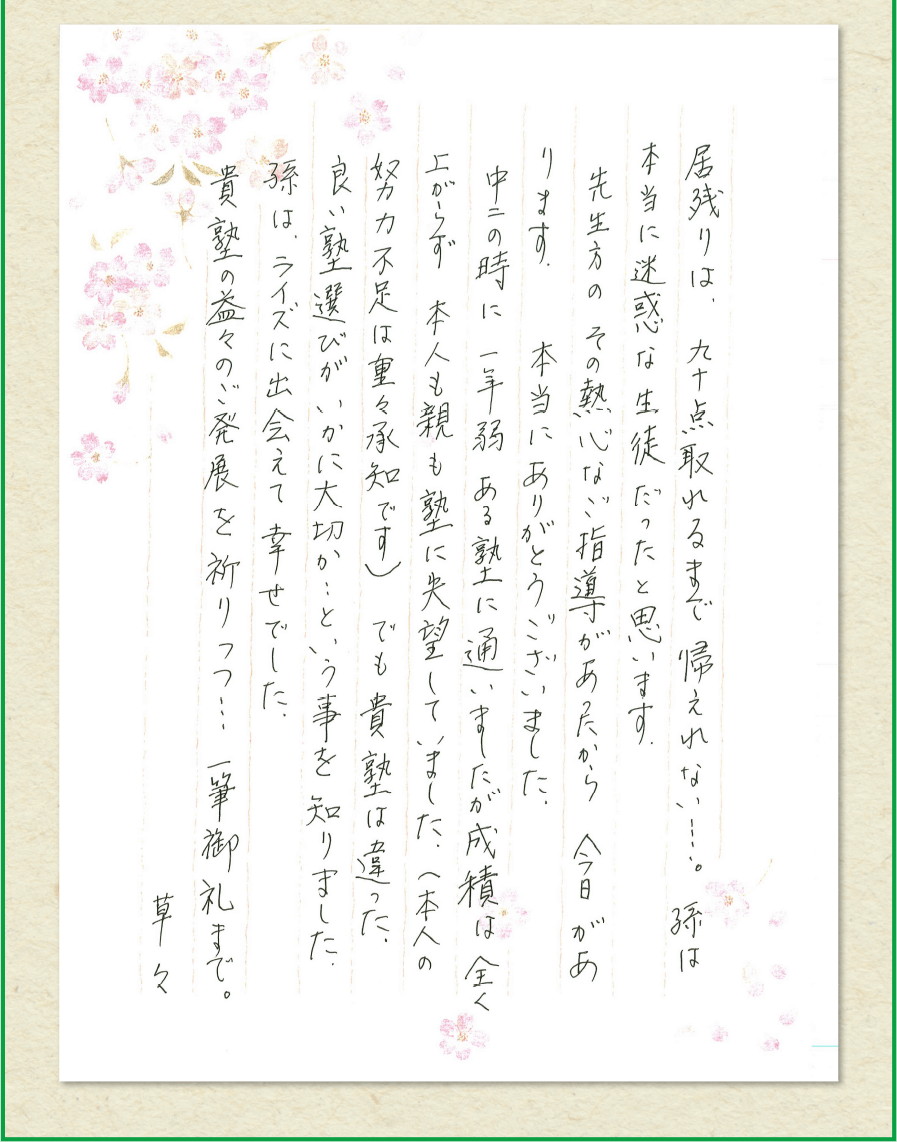 居残りは、九十点取れるまで帰えれない……。孫は
本当に迷惑な生徒だったと思います。
先生方の その熱心なご指導があったから 今日があ
ります。 本当にありがとうございました。
中二の時に 一年弱 ある塾に通いましたが成績は全く
上がらず 本人も親も塾に失望していました。(本人の
努力不足は重々承知です) でも貴塾は違った。
良い塾選びが いかに大切か…という事を知りました。
孫は、ライズに出会えて幸せでした。
貴塾の益々のご発展を祈りつつ… 一筆御礼まで。
草々